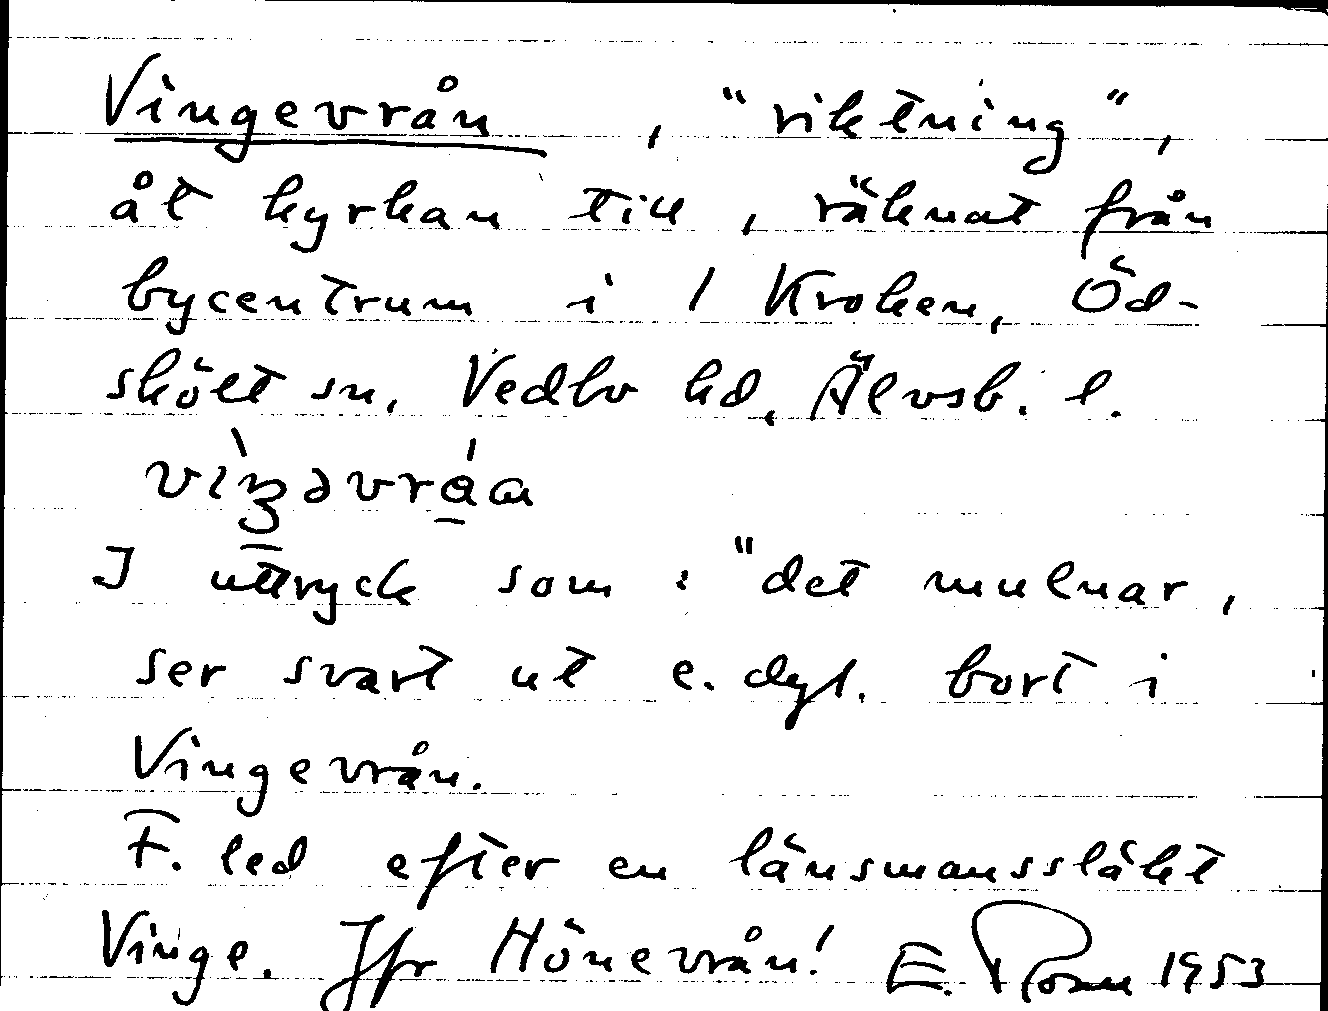 Vingevrån, "riktning",
åt kyrkan till, räknat från
bycentrum i 1 Kroken, Öd-
skölt sn, Vedbo hd, Älvsb. l.
I uttryck som: "det mulnar,
ser svart ut e. dyl. bort i
Vingevrån.
F. led efter en länsmanssläkt
Vinge. Jfr Hönevrån! E. 1953